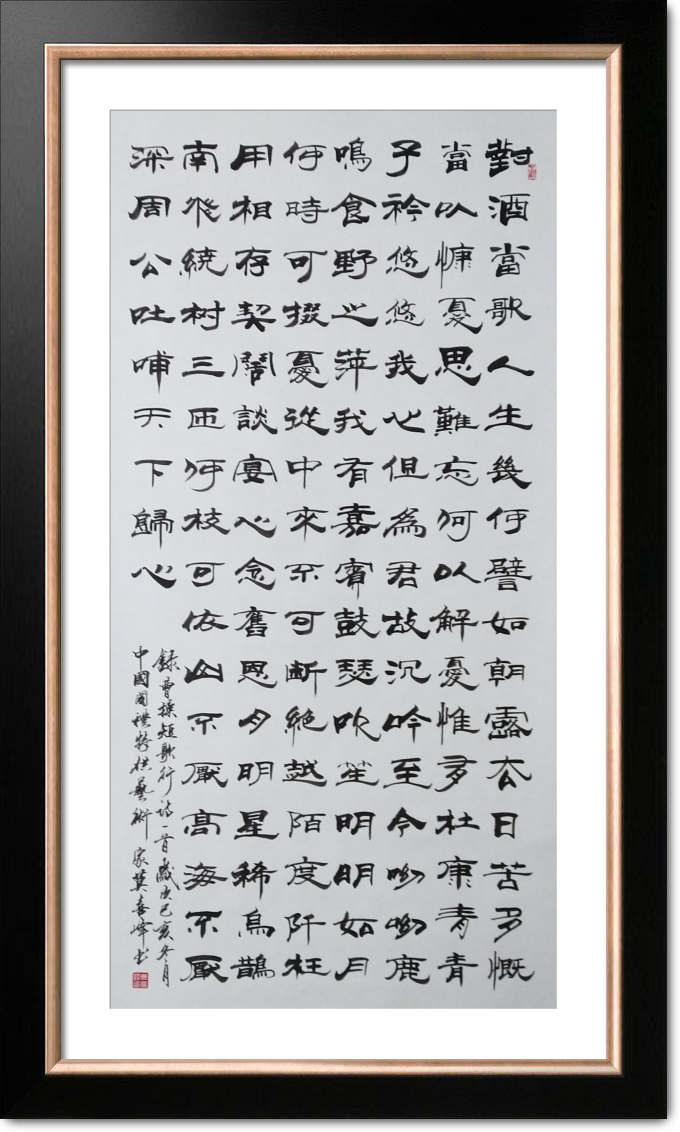 對酒當歌人生幾何譬如朝露去日苦多慨
當以慷憂思難忘何以解憂惟多杜康青青
子衿悠悠我心但為君故沉吟至今呦呦鹿
鳴食野之萍我有嘉賓鼓瑟吹笙明明如月
何時可掇憂從中來不可斷絕越陌度阡枉
用相存契闊談宴心念舊恩月明星稀烏鵲
南飛繞树三匝何枝可依山不厭高海不厭
深周公吐哺天下歸心
錄曹操短歌行詩一首歲次己亥冬月
中國国禮特供藝術家莫喜峰书